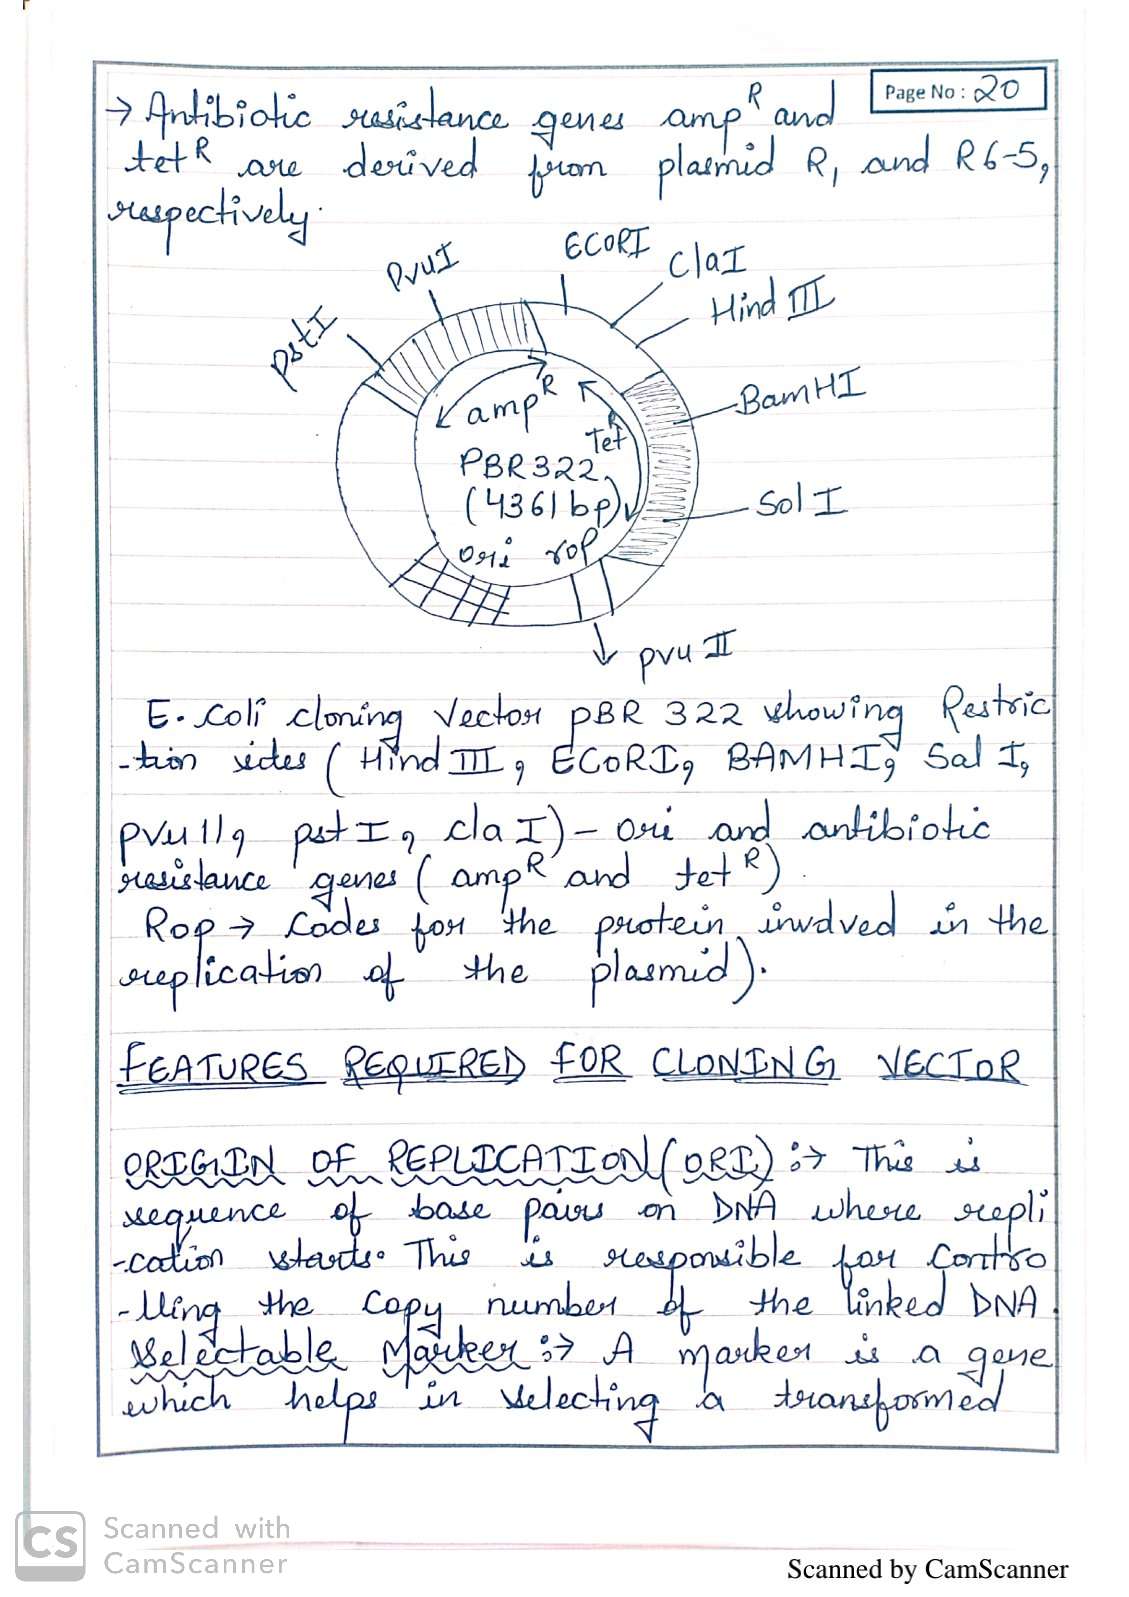 Page No : 20
→ Antibiotic resistance genes amp^R and
tet^R are derived from plasmid R, and R6-5,
respectively.
ECORI
PvuI
ClaI
Hind III
pstI
BamHI
amp^R
Tet^R
PBR322
(4361bp)
Sol I
ori rop
pvu II
E. coli cloning Vector pBR 322 showing Restric
-tion sites ( Hind III, ECORI, BAMHI, Sal I,
pvu 11, pst I, cla I) - ori and antibiotic
resistance genes ( amp^R and tet^R)
Rop → Codes for the protein involved in the
replication of the plasmid).
FEATURES REQUIRED FOR CLONING VECTOR
ORIGIN OF REPLICATION (ORI) :→ This is
sequence of base pairs on DNA where repli
-cation starts. This is responsible for Contro
-lling the Copy number of the linked DNA.
Selectable Marker :→ A marker is a gene
which helps in selecting a transformed
CS Scanned with
CamScanner
Scanned by CamScanner